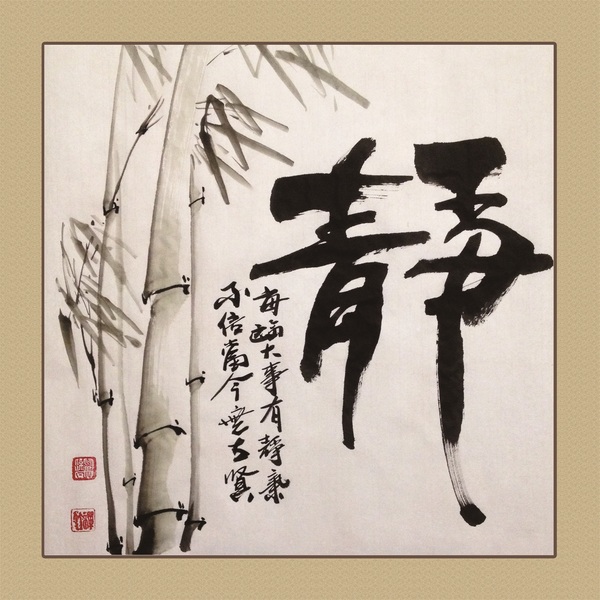 靜
每臨大事有靜氣
不信當今無古賢